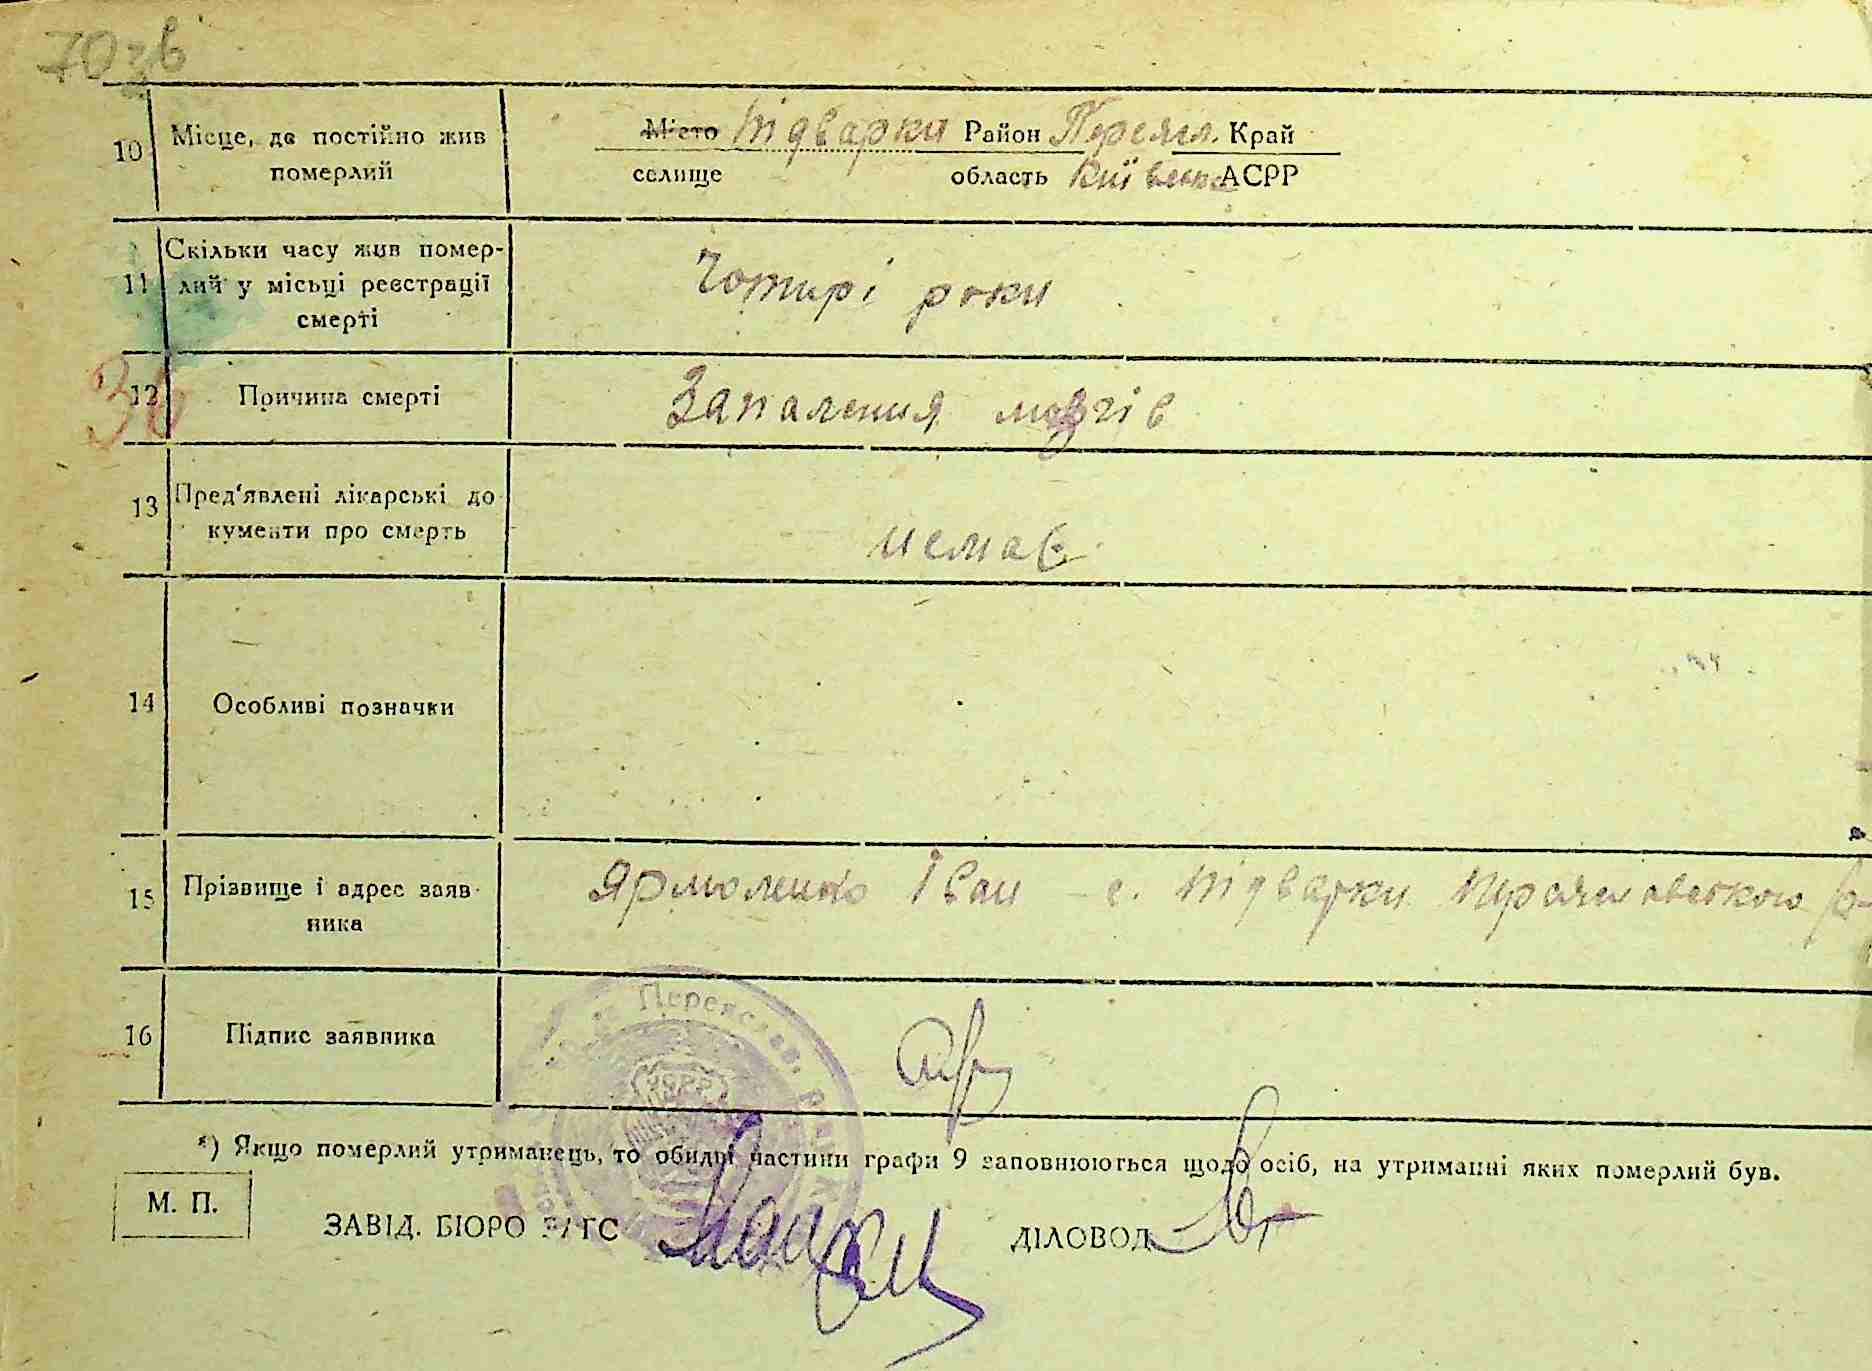 70зв
10 Місце, де постійно жив
померлий
Місто Підварки Район Переясл. Край
селище область Київська АСРР
11 Скільки часу жив помер-
лий у місьці реєстрації
смерті
Чотирі роки
36
12 Причина смерті
Запалення мозгів
13 Пред'явлені лікарські до
кументи про смерть
немає
14 Особливі позначки
15 Прізвище і адрес заяв-
ника
Ярмоленко Іван с. Підварки Переяславського р-
16 Підпис заявника
Переяслав.
УСРР
*) Якщо померлий утриманець, то обидві частини графи 9 заповнюються щодо осіб, на утриманні яких померлий був.
М. П.
ЗАВІД. БЮРО ЗАГС
ДІЛОВОД